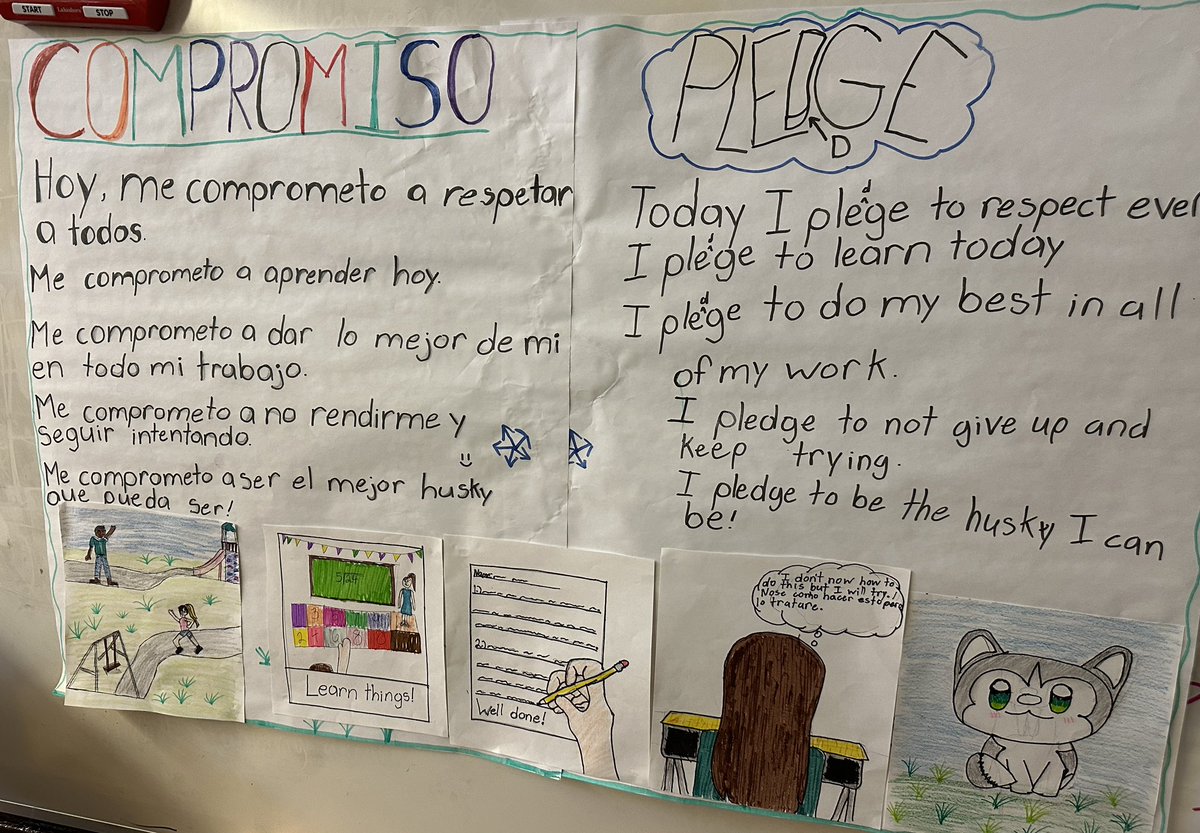 START
Lakeshore
STOP
COMPROMISO
Hoy, me comprometo a respetar
a todos.
Me comprometo a aprender hoy.
Me comprometo a dar lo mejor de mi
en todo mi trabajo.
Me comprometo a no rendirme y
seguir intentando.
Me comprometo a ser el mejor husky
que pueda ser!
PLEDGE
D
Today I pledge to respect ever
I pledge to learn today
I pledge to do my best in all
of my work.
I pledge to not give up and
keep trying.
I pledge to be the husky I can
be!
Learn things!
Name:
1)
2)
Well done!
I don't now how to
do this but I will try!
Nose como hacer esto pero
lo tratare.